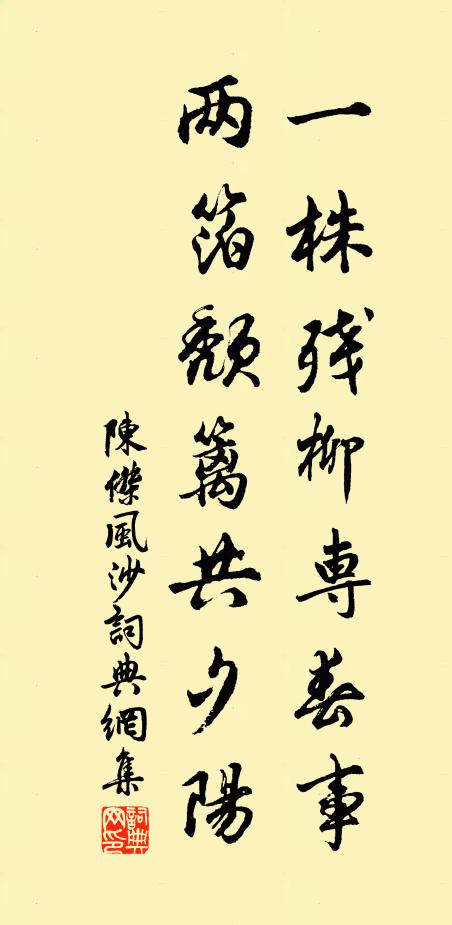 一株残柳専春事
两箔頹篱共夕陽
陳傑風沙詞典網集
詞典网印